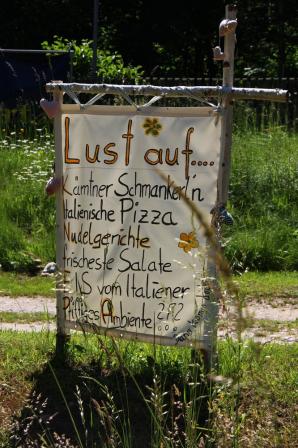 Lust auf....
Kärntner Schmankerl'n
Italienische Pizza
Nudelgerichte
frischeste Salate
EIS vom Italiener
Pfiffiges Ambiente ???